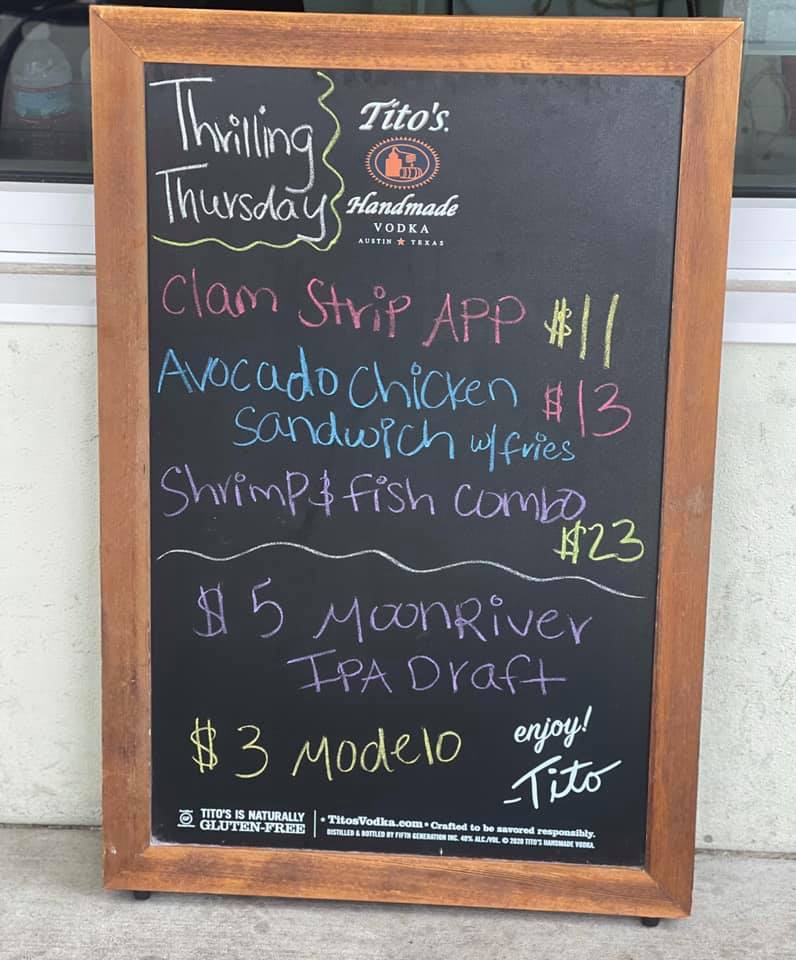 Thrilling
Thursday
Tito's.
Handmade
VODKA
AUSTIN ★ TEXAS
Clam Strip APP $11
Avocado Chicken $13
Sandwich w/fries
Shrimp & fish combo
$23
$5 MoonRiver
IPA Draft
$3 Modelo
enjoy!
-Tito
TITO'S IS NATURALLY
GLUTEN-FREE
• TitosVodka.com • Crafted to be savored responsibly.
DISTILLED & BOTTLED BY FIFTH GENERATION INC. 40% ALC./VOL. © 2020 TITO'S HANDMADE VODKA.